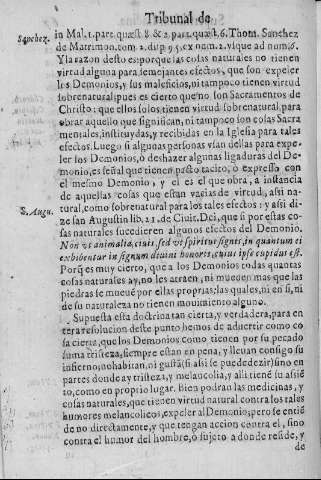 Tribunal de
Sanchez.
in Mal. 1. part. quæst. 8. & 2. part. quæst. 6. Thom. Sanchez
de Matrimon. tom. 2. disp. 95. ex num. 2. vsque ad num. 6.
Y la razon desto es: porque las cosas naturales no tienen
virtud alguna para semejantes efectos, que son expeler
los Demonios, y sus maleficios, ni tampoco tienen virtud
sobrenatural: pues es cierto que no son Sacramentos de
Christo: que ellos solos tienen virtud sobrenatural, para
obrar aquello que significan, ni tampoco son cosas Sacra
mentales, instituydas, y recibidas en la Iglesia para tales
efectos. Luego si algunas personas vsan dellas para expe-
ler los Demonios, ò deshazer algunas ligaduras del De-
monio, es señal que tienen pacto tacito, ò expresso con
el mesmo Demonio, y el es el que obra, a instancia
de aquellas cosas que estan vazias de virtud, assi na-
tural, como sobrenatural para los tales efectos: y assi di-
S. Augu.
ze san Augustin lib. 21. de Ciuit. Dei, que si por estas co-
sas naturales sucedieren algunos efectos del Demonio.
Non vt animalia, ciuis, sed vt spiritus signis, in quantum ei
exhibentur in signum diuini honoris, cuius ipse cupidus est.
Porq̃ es muy cierto, que a los Demonios todas quantas
cosas naturales ay, no les atraen, ni mueuen mas que las
piedras se mueuē por ellas proprias; las quales, ni en si, ni
de su naturaleza no tienen mouimiento alguno.
Supuesta esta doctrina tan cierta, y verdadera, para en
tera resolucion deste punto hemos de aduertir como co
sa cierta, que los Demonios como tienen por su pecado
suma tristeza, siempre estan en pena, y lleuan consigo su
infierno, no habitan, ni gustã (si assi se puede dezir) sino en
partes donde ay tristeza, y melancolia, y alli tiene su assiē
to, como en proprio lugar. bien podran las medicinas, y
cosas naturales, que tienen virtud natural contra los tales
humores melancolicos, expeler al Demonio, pero se entiē
de no directamente, y que tengan accion contra el, sino
contra el humor del hombre, ò sujeto a donde reside, y
de